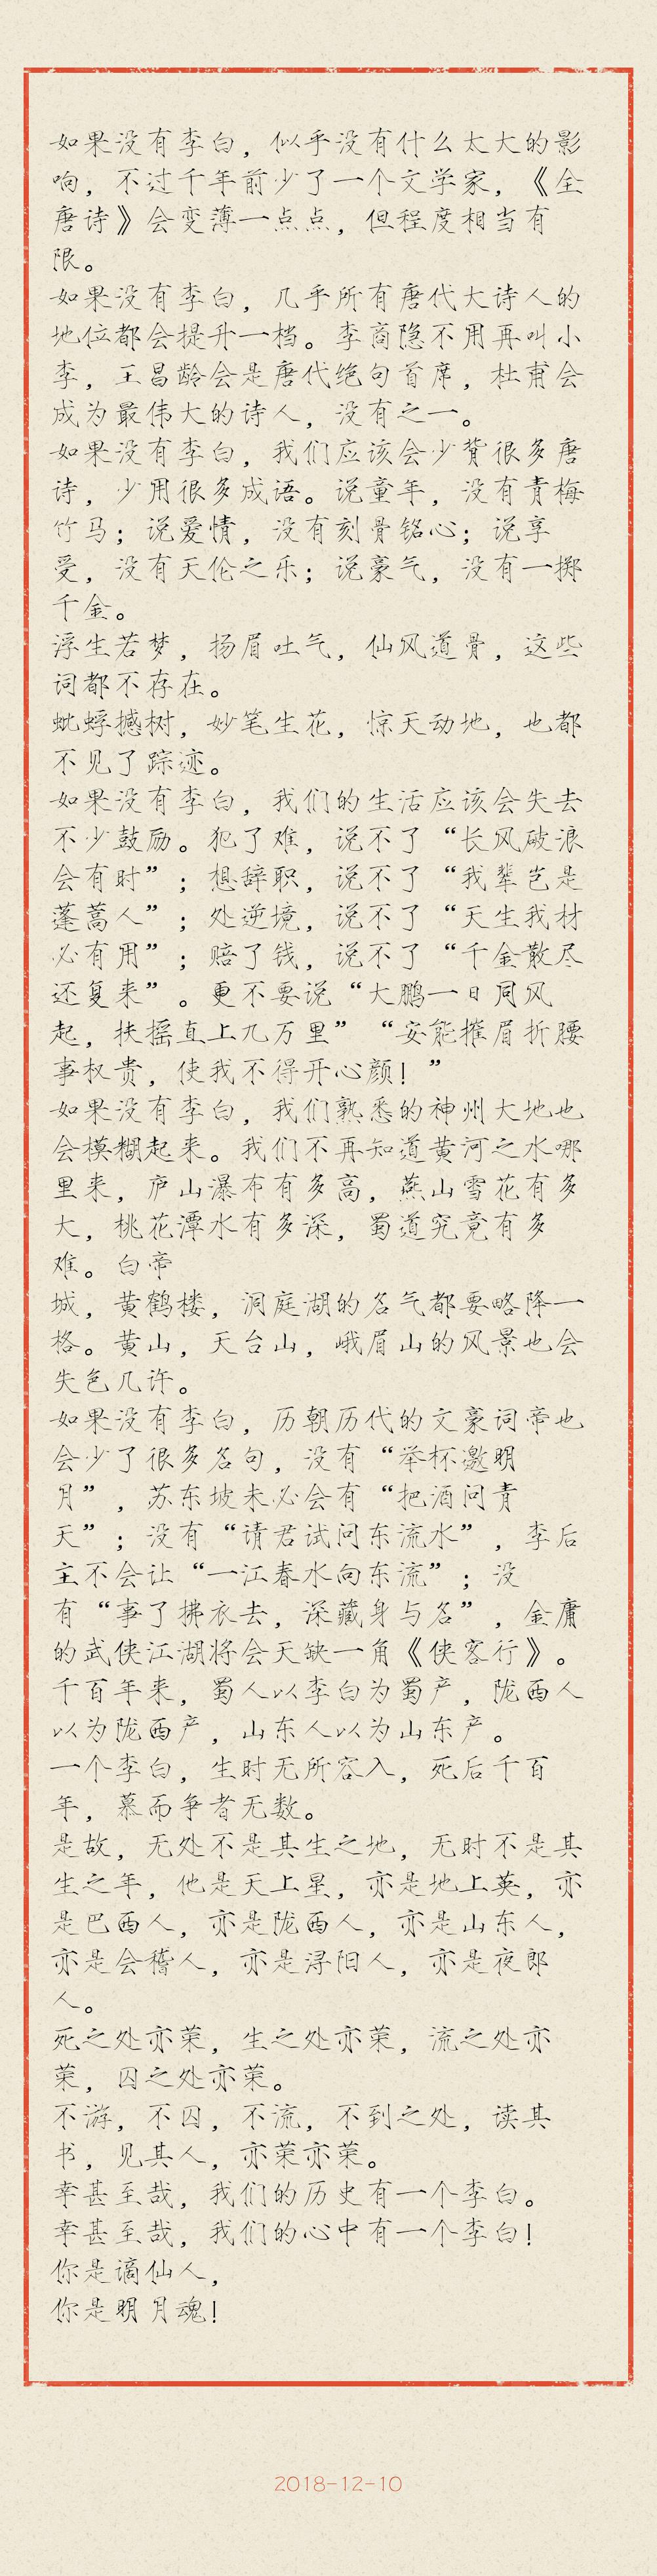 如果没有李白，似乎没有什么太大的影
响，不过千年前少了一个文学家，《全
唐诗》会变薄一点点，但程度相当有
限。
如果没有李白，几乎所有唐代大诗人的
地位都会提升一档。李商隐不用再叫小
李，王昌龄会是唐代绝句首席，杜甫会
成为最伟大的诗人，没有之一。
如果没有李白，我们应该会少背很多唐
诗，少用很多成语。说童年，没有青梅
竹马；说爱情，没有刻骨铭心；说享
受，没有天伦之乐；说豪气，没有一掷
千金。
浮生若梦，扬眉吐气，仙风道骨，这些
词都不存在。
蚍蜉撼树，妙笔生花，惊天动地，也都
不见了踪迹。
如果没有李白，我们的生活应该会失去
不少鼓励。犯了难，说不了“长风破浪
会有时”；想辞职，说不了“我辈岂是
蓬蒿人”；处逆境，说不了“天生我材
必有用”；赔了钱，说不了“千金散尽
还复来”。更不要说“大鹏一日同风
起，扶摇直上九万里”“安能摧眉折腰
事权贵，使我不得开心颜！”
如果没有李白，我们熟悉的神州大地也
会模糊起来。我们不再知道黄河之水哪
里来，庐山瀑布有多高，燕山雪花有多
大，桃花潭水有多深，蜀道究竟有多
难。白帝
城，黄鹤楼，洞庭湖的名气都要略降一
格。黄山，天台山，峨眉山的风景也会
失色几许。
如果没有李白，历朝历代的文豪词帝也
会少了很多名句，没有“举杯邀明
月”，苏东坡未必会有“把酒问青
天”；没有“请君试问东流水”，李后
主不会让“一江春水向东流”；没
有“事了拂衣去，深藏身与名”，金庸
的武侠江湖将会天缺一角《侠客行》。
千百年来，蜀人以李白为蜀产，陇西人
以为陇西产，山东人以为山东产。
一个李白，生时无所容入，死后千百
年，慕而争者无数。
是故，无处不是其生之地，无时不是其
生之年，他是天上星，亦是地上英，亦
是巴西人，亦是陇西人，亦是山东人，
亦是会稽人，亦是浔阳人，亦是夜郎
人。
死之处亦荣，生之处亦荣，流之处亦
荣，囚之处亦荣。
不游，不囚，不流，不到之处，读其
书，见其人，亦荣亦荣。
幸甚至哉，我们的历史有一个李白。
幸甚至哉，我们的心中有一个李白！
你是谪仙人，
你是明月魂！
2018-12-10